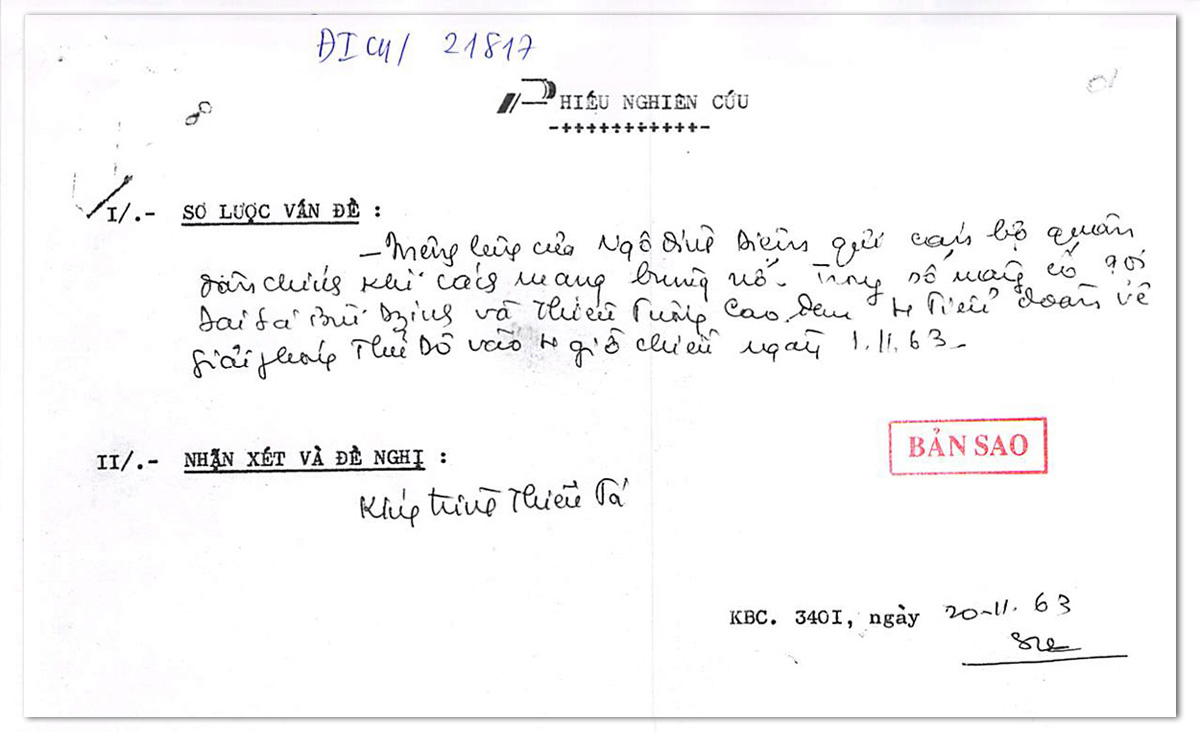 ĐICH/ 21817
PHIẾU NGHIÊN CỨU
-++++++++++++-
I/.- SƠ LƯỢC VẤN ĐỀ :
- Mệnh lệnh của Ngô Đình Diệm gửi cán bộ quân
dân chính khi cách mạng bùng nổ. Trong số mạng có gọi
Đại tá Bùi Dzinh và Thiếu Tướng Cao đem 4 Tiểu đoàn về
giải phóng Thủ Đô vào 4 giờ chiều ngày 1.11.63-
BẢN SAO
II/.- NHẬN XÉT VÀ ĐỀ NGHỊ :
Kính trình Thiếu Tá
KBC. 340I, ngày 20-11.63